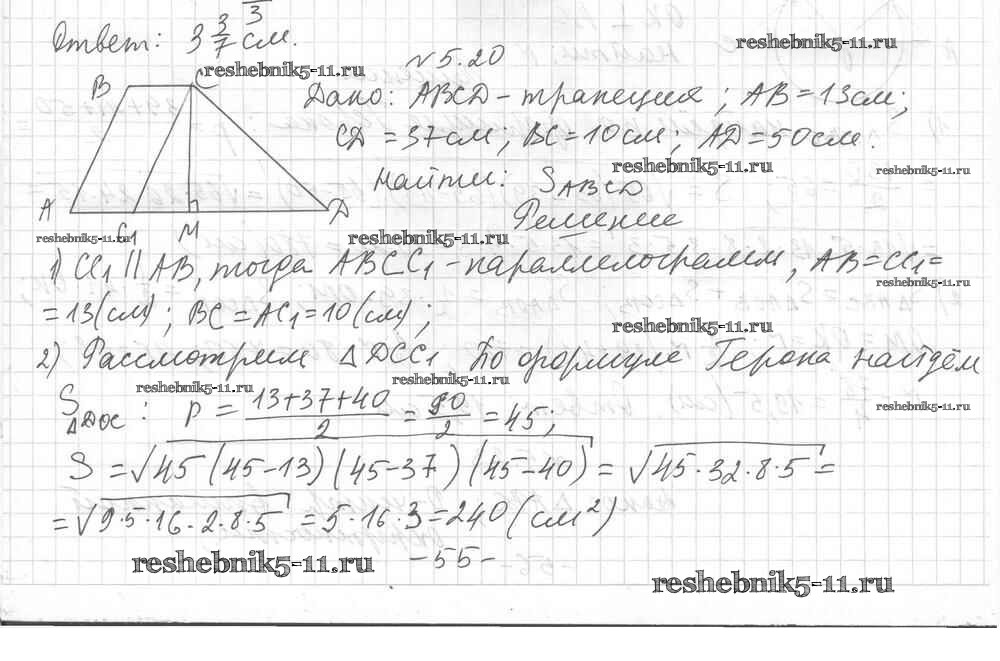 3
Ответ: 3 3/7 см.
reshebnik5-11.ru
reshebnik5-11.ru
№ 5.20
B C
Дано: ABCD - трапеция; AB = 13 см;
CD = 37 см; BC = 10 см; AD = 50 см.
reshebnik5-11.ru
reshebnik5-11.ru
Найти: S_ABCD
Решение
A C1 M D
reshebnik5-11.ru
reshebnik5-11.ru
1) CC1 || AB, тогда ABCC1 - параллелограмм, AB = CC1 =
reshebnik5-11.ru
= 13 (см); BC = AC1 = 10 (см);
reshebnik5-11.ru
2) Рассмотрим △DCC1 По формуле Герона найдём
reshebnik5-11.ru
reshebnik5-11.ru
reshebnik5-11.ru
S△DOC : p = (13+37+40)/2 = 90/2 = 45;
S = √45 (45-13) (45-37) (45-40) = √45·32·8·5 =
= √9·5·16·2·8·5 = 5·16·3 = 240 (см²)
reshebnik5-11.ru
-55-
reshebnik5-11.ru